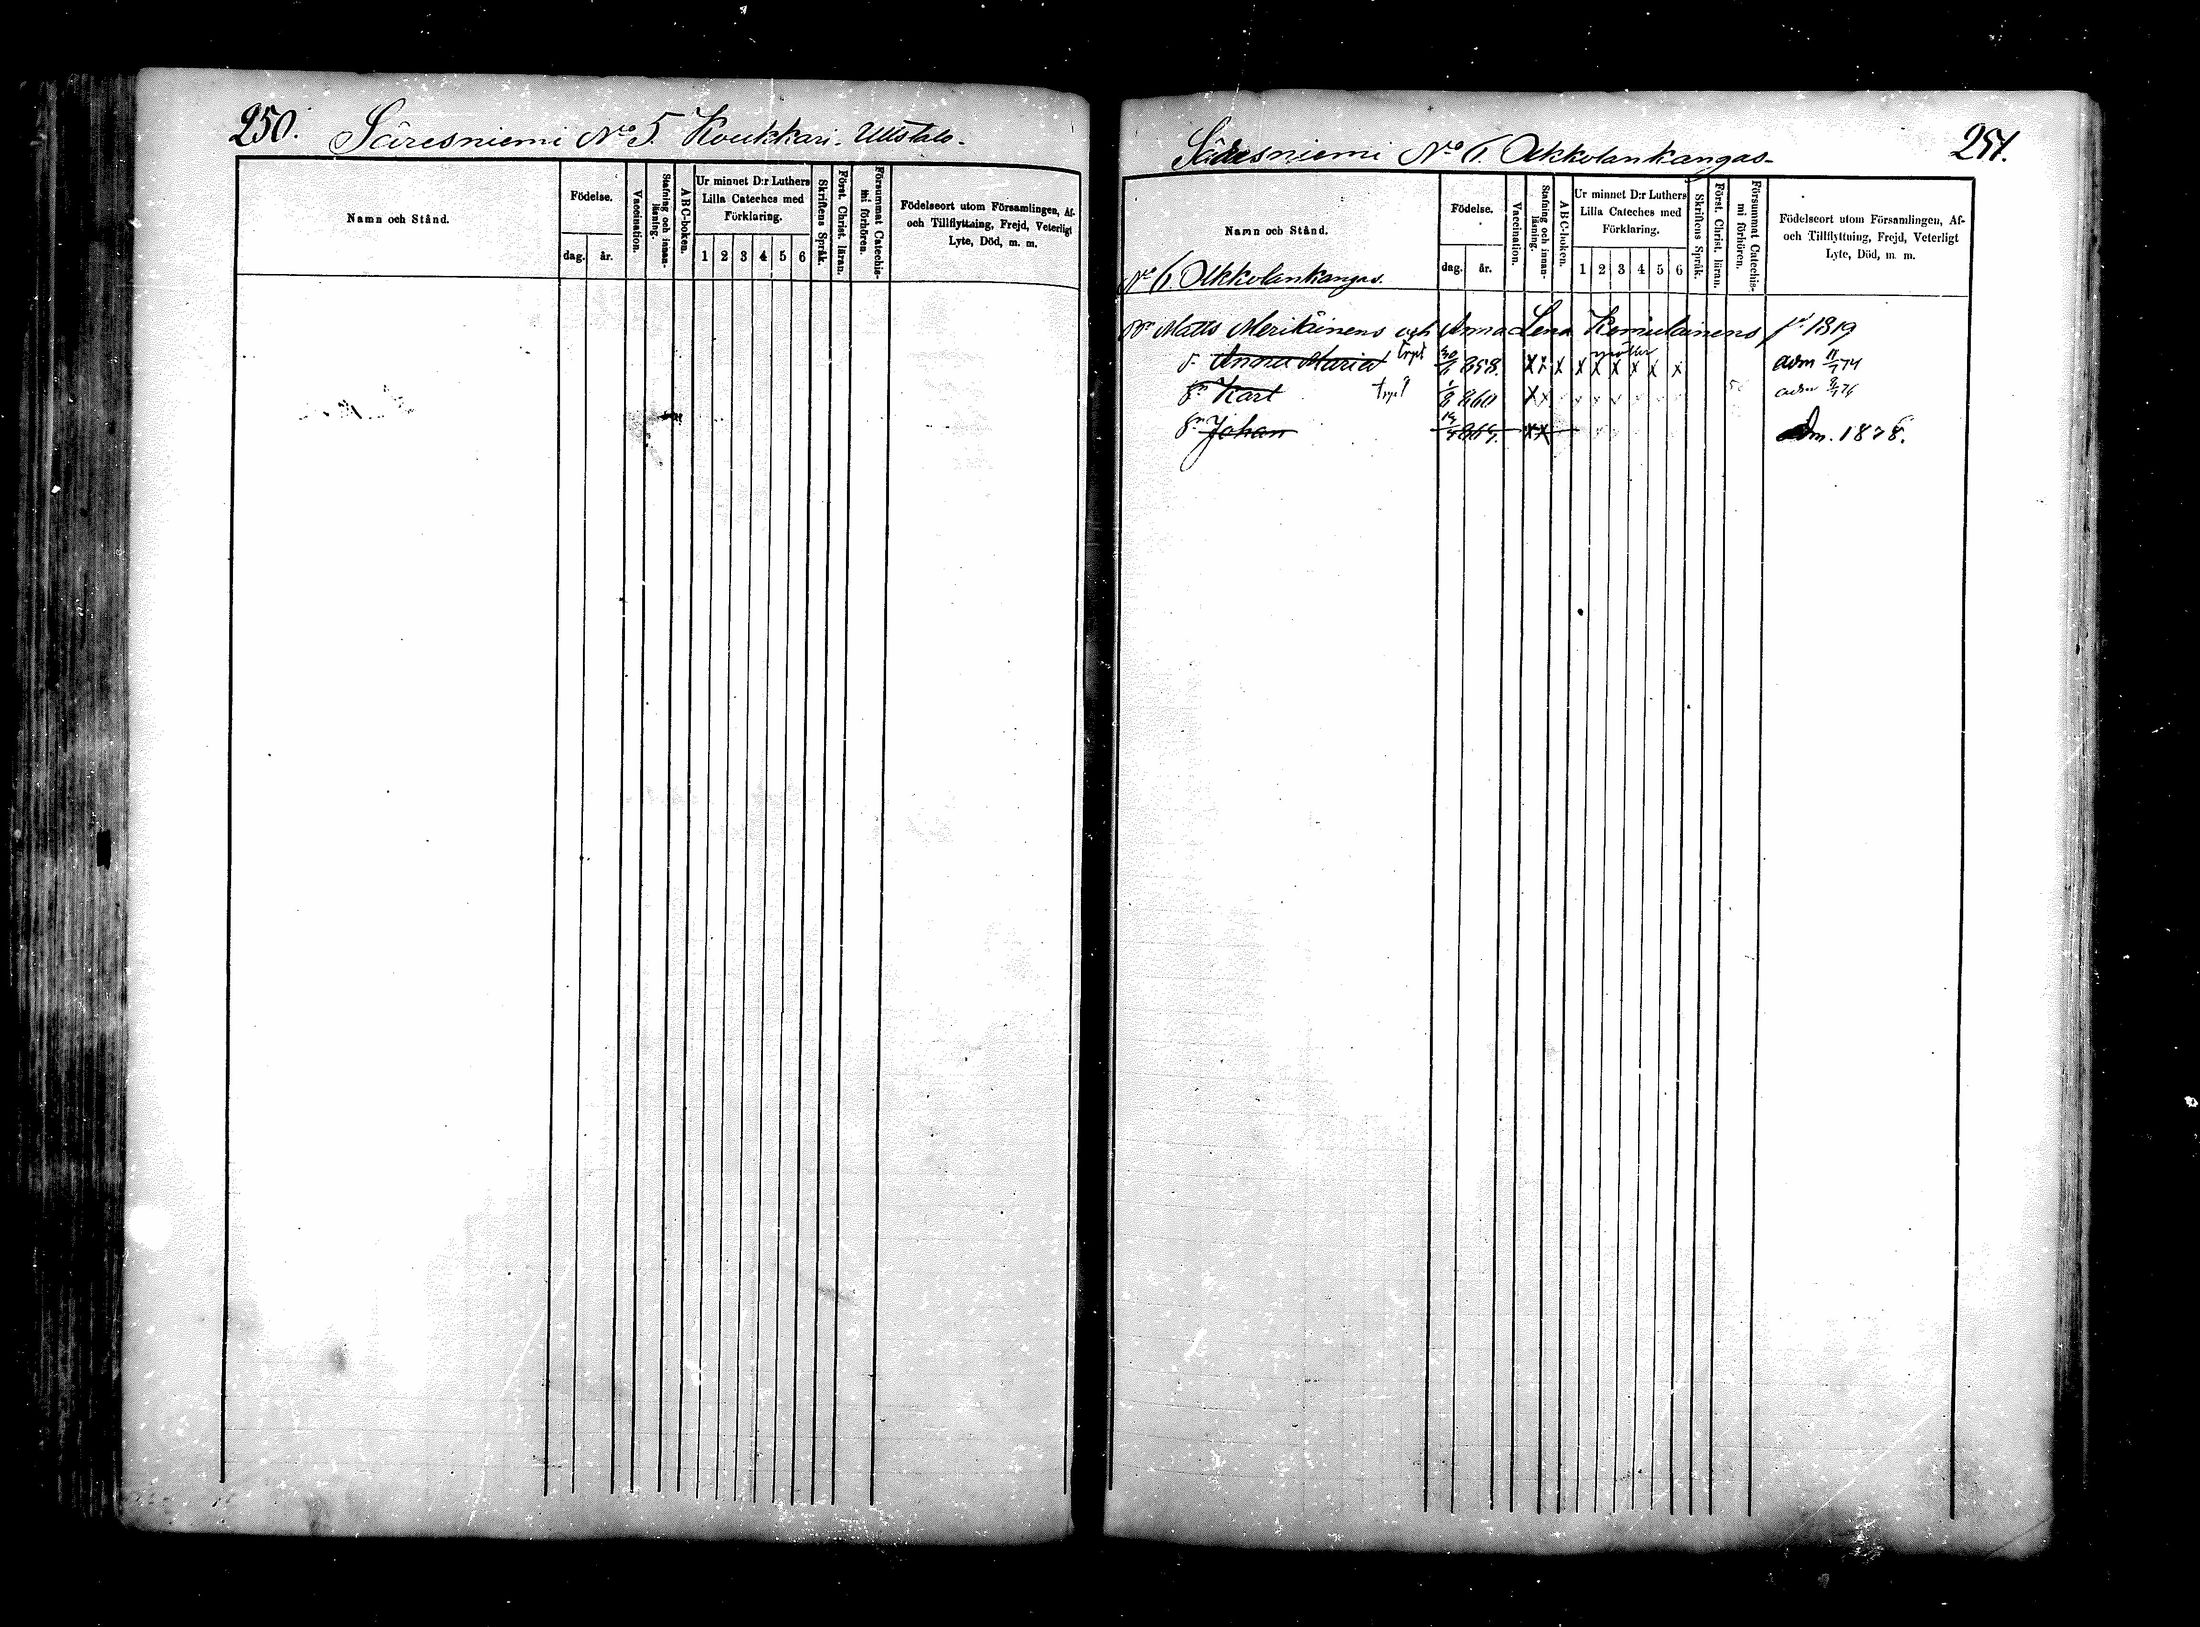 250.
Säresniemi No 5. Koukkari. Ullstalo.
Namn och Stånd.
Födelse.
dag. år.
Vaccination.
Stafning och innan-läsning.
ABC-boken.
Ur minnet D:r Luthers
Lilla Cateches med
Förklaring.
1 2 3 4 5 6
Skriftens Språk.
Först. Christ. läran.
Försummat Catechis-
mi förhören.
Födelseort utom Församlingen, Af-
och Tillflyttning, Frejd, Veterligt
Lyte, Död, m. m.
251.
Säresniemi No 6. Akkolankangas.
Namn och Stånd.
No 6. Akkolankangas.
Födelse.
dag. år.
Vaccination.
Stafning och innan-
läsning.
ABC-boken.
Ur minnet D:r Luthers
Lilla Cateches med
Förklaring.
1 2 3 4 5 6
Skriftens Språk.
Först. Christ. läran.
Försummat Catechis-
mi förhören.
Födelseort utom Församlingen, Af-
och Tillflyttning, Frejd, Veterligt
Lyte, Död, m. m.
Matts Meriläinens och Anna Lena Kemilainens p. 1319
Anna Maria 858. x x x x x x x x x adm 11/7 74
Karl 860 x x adm 76
Johan x x adm. 1878.